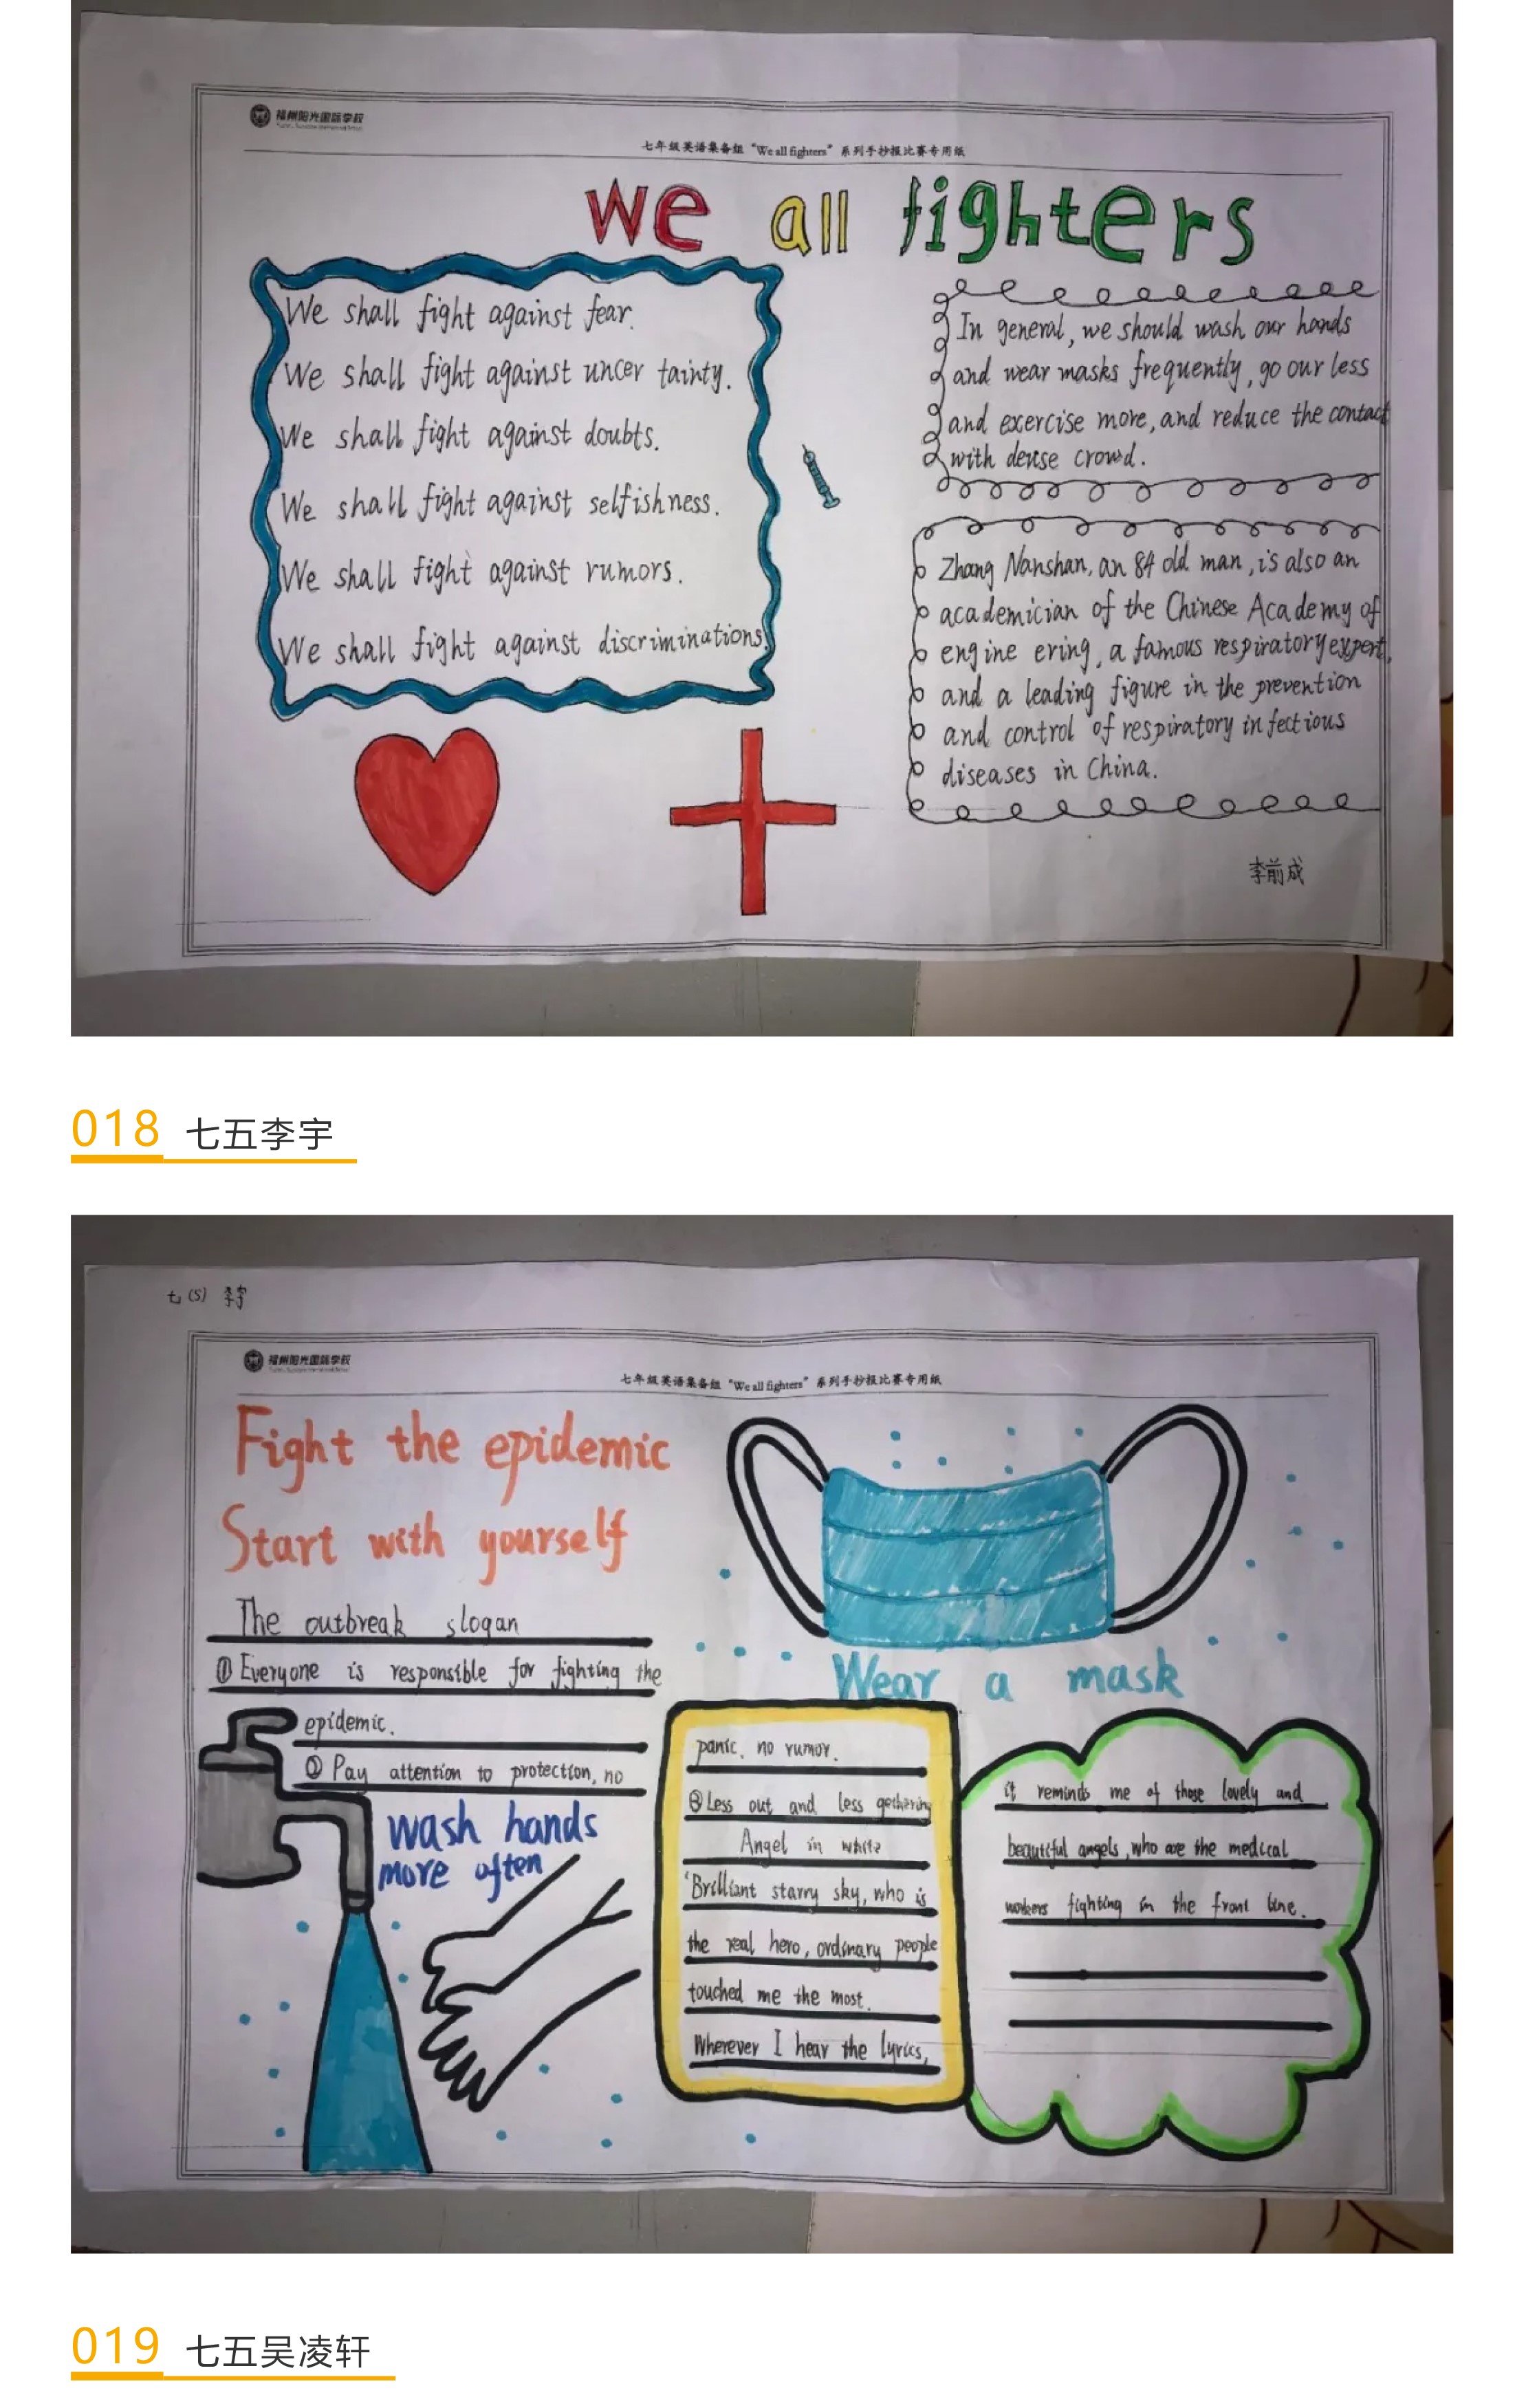 福州阳光国际学校
七年级英语集备组“We all fighters”系列手抄报比赛专用纸
We all fighters
We shall fight against fear.
We shall fight against uncer tainty.
We shall fight against doubts.
We shall fight against selfishness.
We shall fight against rumors.
We shall fight against discriminations.
In general, we should wash our hands
and wear masks frequently, go our less
and exercise more, and reduce the contact
with dense crowd.
Zhong Nanshan, an 84 old man, is also an
academician of the Chinese Academy of
engine ering, a famous respiratory expert,
and a leading figure in the prevention
and control of respiratory infectious
diseases in China.
李前成
018 七五李宇
七(5) 李宇
福州阳光国际学校
七年级英语集备组“We all fighters”系列手抄报比赛专用纸
Fight the epidemic
Start with yourself
The outbreak slogan
① Everyone is responsible for fighting the
epidemic.
② Pay attention to protection, no
wash hands
more often
Wear a mask
panic. no rumor.
③ Less out and less gethering
Angel in white
"Brilliant starry sky, who is
the real hero, ordinary people
touched me the most.
Wherever I hear the lyrics,
it reminds me of those lovely and
beautiful angels, who are the medical
workers fighting in the front line.
019 七五吴凌轩